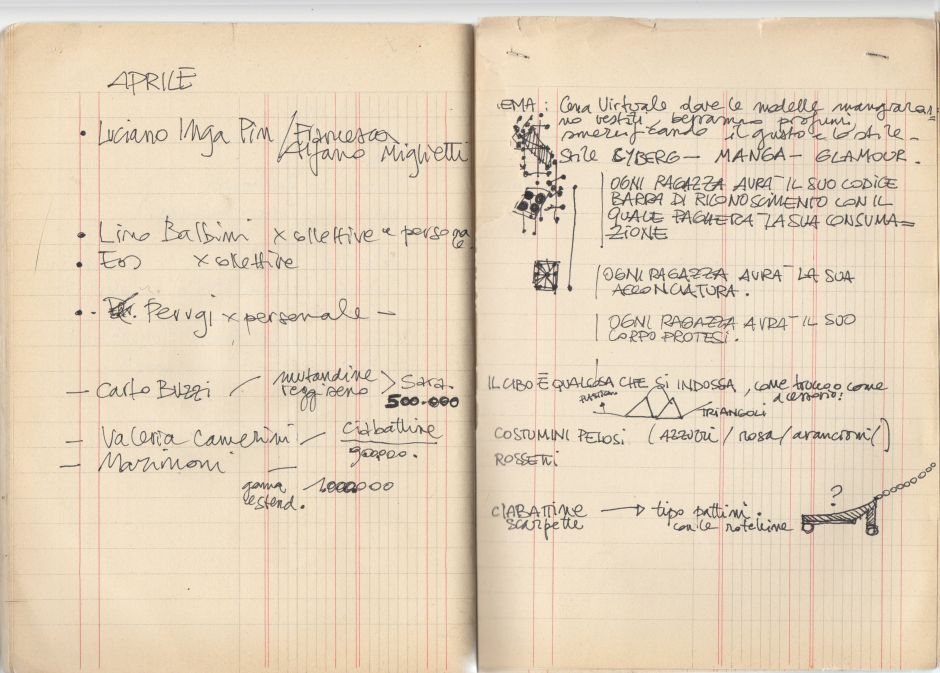 APRILE
• Luciano Inga Pin / Francesca
Alfano Miglietti
• Lino Baldini x collettive e personale
• Eos x collettive
• Perugi x personale –
– Carlo Buzzi / mutandine reggiseno > Sara.
500.000
– Valeria Camerini – ciabattine
– Marimoni –
1.000.000
.EMA : Cena Virtuale dove le modelle mangiaran=
no vestiti, berranno profumi,
il gusto e lo stile –
Stile CYBERG – MANGA – GLAMOUR.
OGNI RAGAZZA AVRA' IL SUO CODICE
BARRA DI RICONOSCIMENTO CON IL
QUALE PAGHERA' LA SUA CONSUMA=
ZIONE
OGNI RAGAZZA AVRA' LA SUA
ACCONCIATURA.
OGNI RAGAZZA AVRA' IL SUO
CORPO PROTESI.
IL CIBO È QUALCOSA CHE SI INDOSSA, come trucco come
accessorio!
TRIANGOLI
COSTUMINI PELOSI (AZZURRI / rosa / arancioni /)
ROSSETTI
?
CIABATTINE → tipo pattini.
scarpette con le rotelline